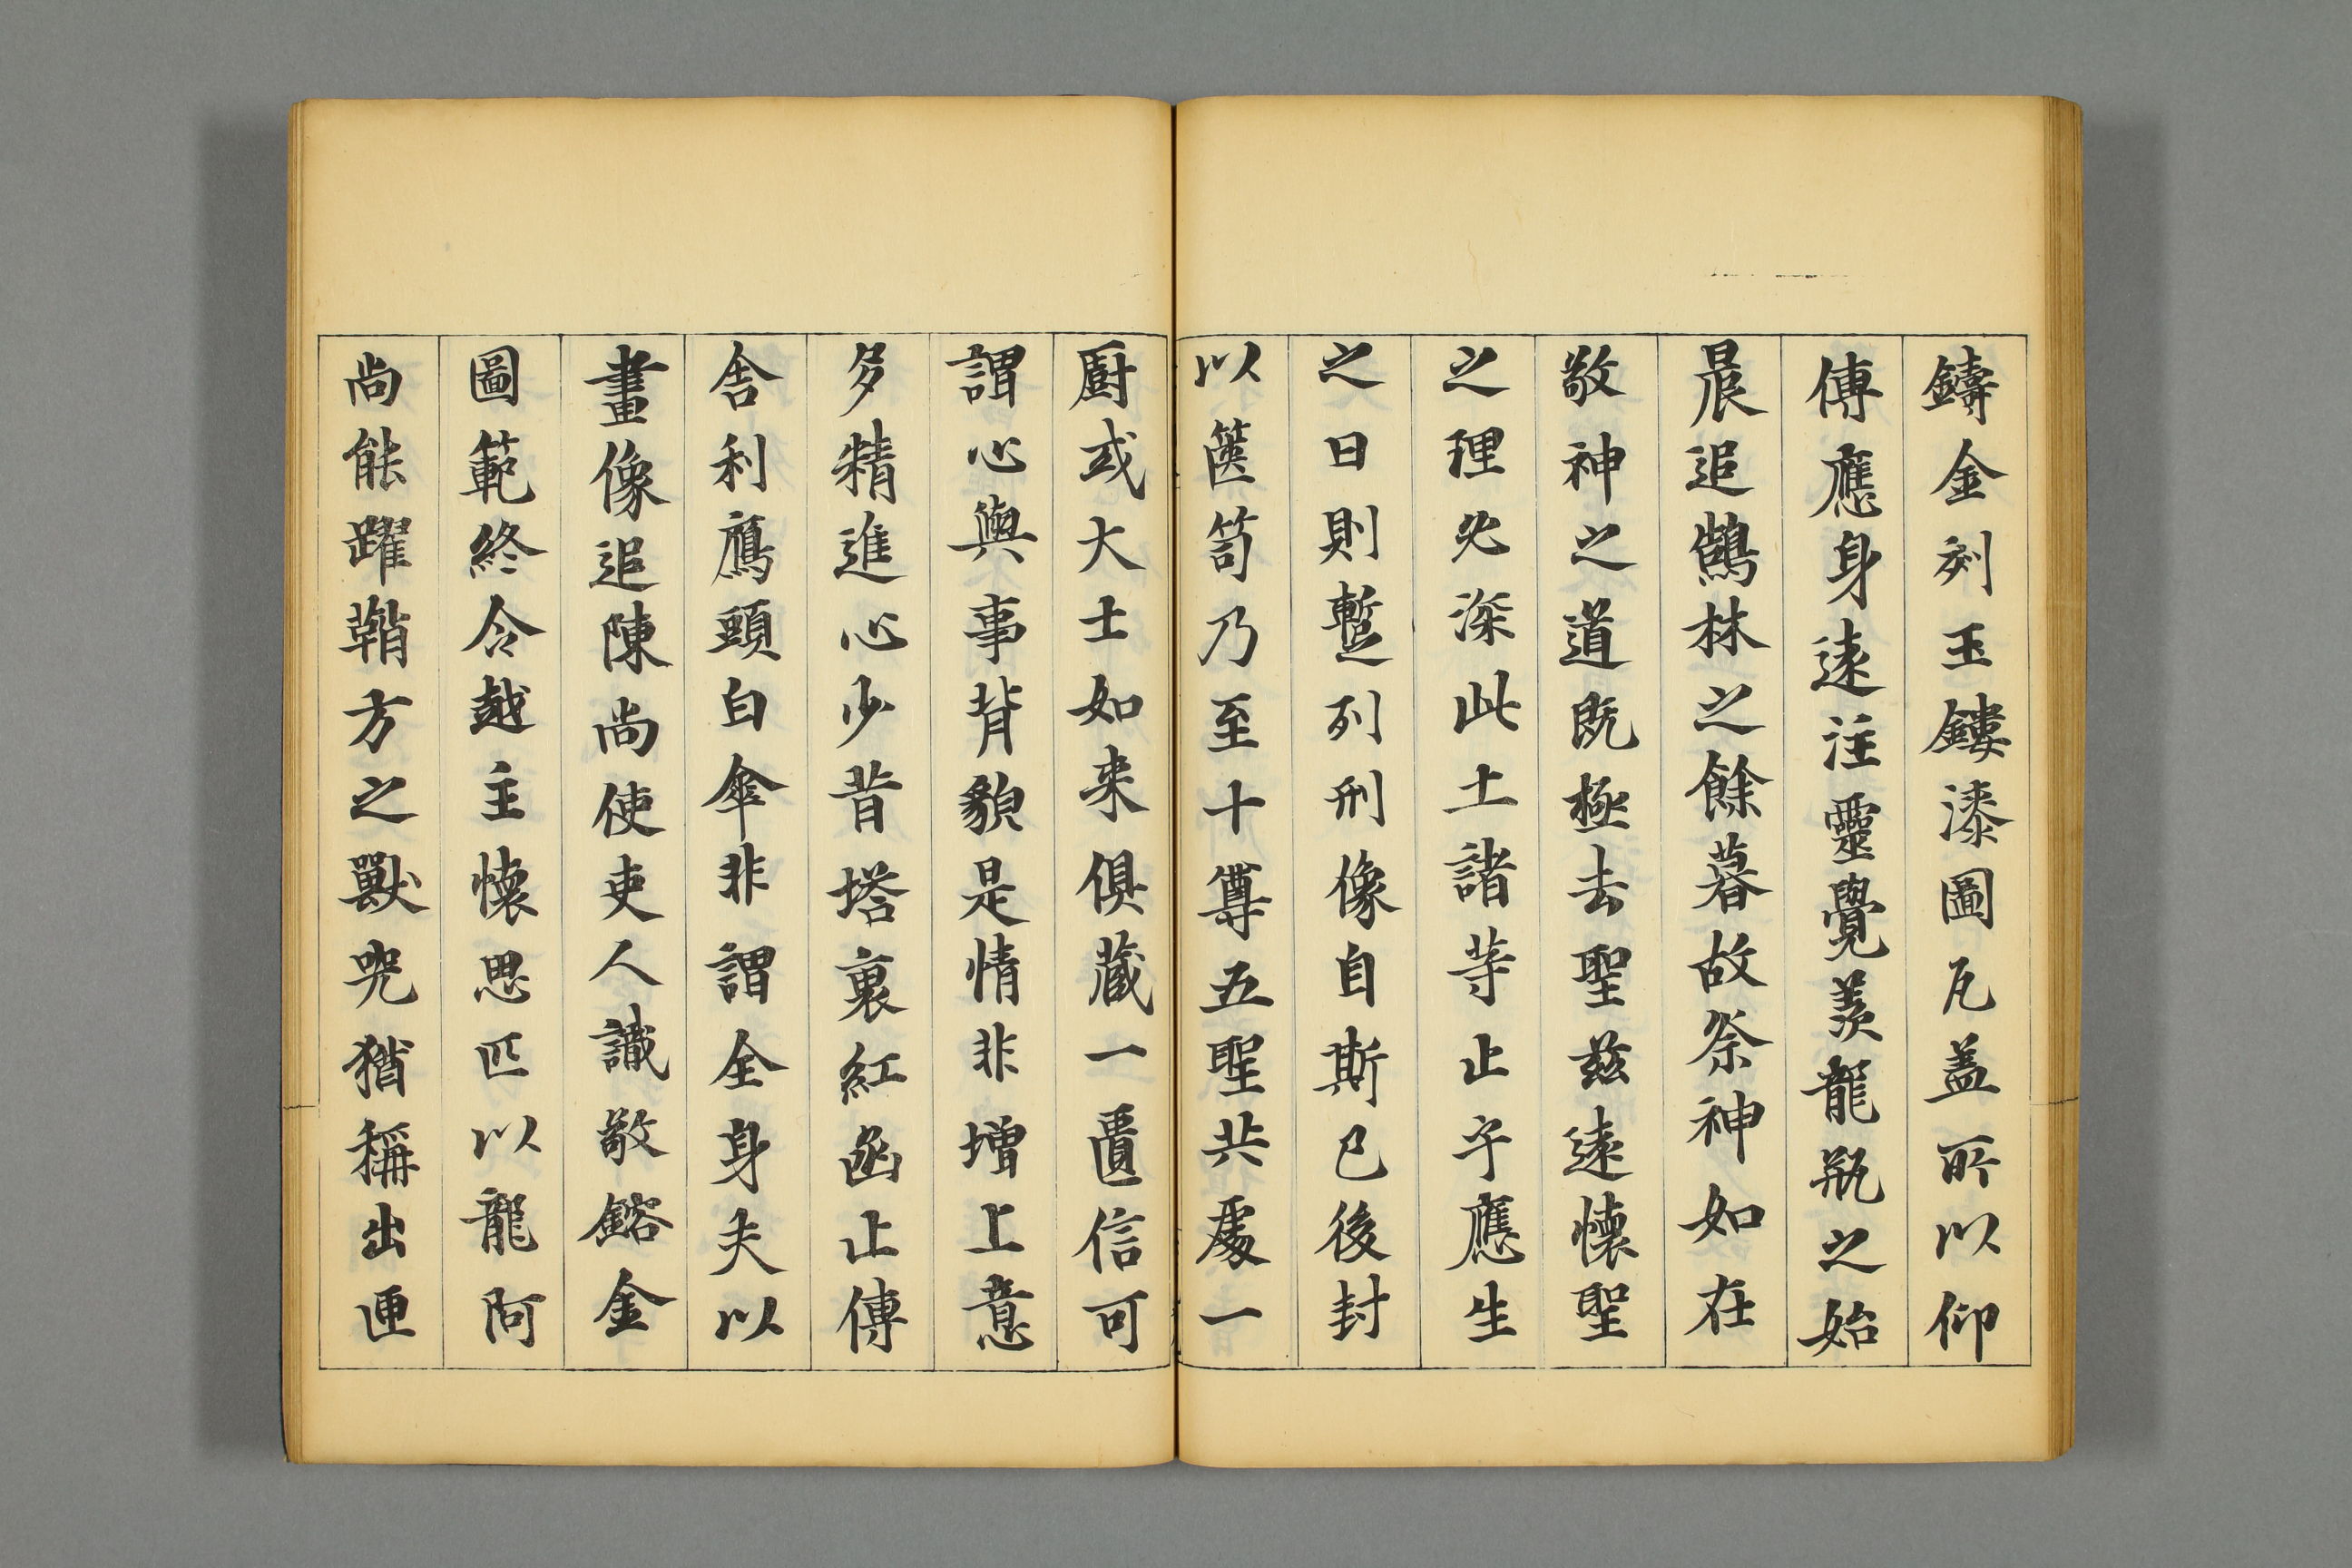 鑄金刻玉鏤漆圖瓦盖所以仰
傳應身遠注靈覺羡龍瓶之始
晨追鶴林之餘暮故祭神如在
敬神之道既極去聖兹遠懷聖
之理必深此土諸等止乎應生
之日則蹔列形像自斯已後封
以篋笥乃至十尊五聖共處一
厨或大士如来俱藏一匱信可
謂心與事背貌是情非增上意
多精進心少昔塔裏紅函止傳
舍利鴈頭白傘非謂全身夫以
畫像追陳尚使吏人識敬鎔金
圖範終令越主懷思匹以龍阿
尚能躍鞘方之獸兕猶稱出匣